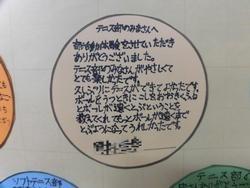 テニス部のみなさんへ
部活動体験をさせていただき
ありがとうございました。
テニス部のみなさんがやさしくて
とても楽しかったです。
久しぶりにテニスができてよかったです。
ボールをうつときにこしをおとして
とボールが遠くとぶということを
教えてくれてもっとボールが遠くまで
とぶようになってうれしかったです。
ソフトテニス部
テニス部